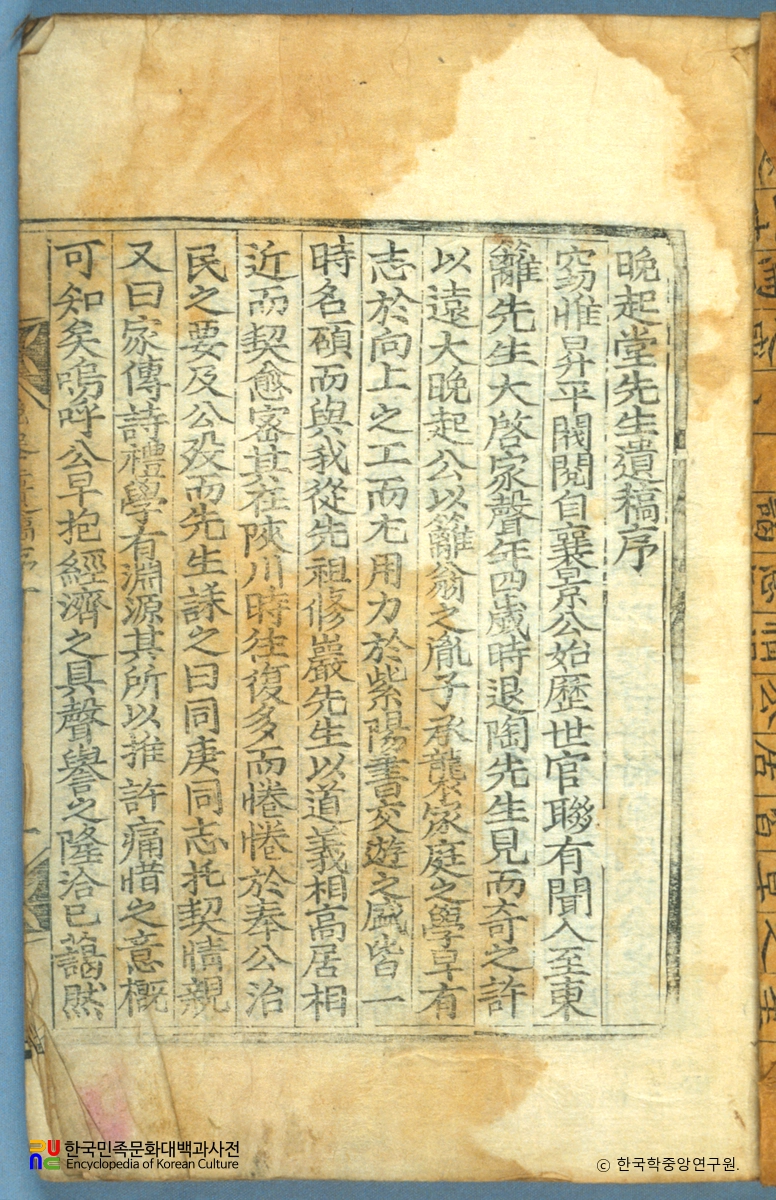 晩起堂先生遺稿序
窃惟昇平閥閱自襄景公始歷世官聯有聞人至東
籬先生大啓家聲年四歲時退陶先生見而奇之許
以遠大晩起公以籬翁之胤子承襲家庭之學早有
志於向上之工而尤用力於紫陽書交遊之盛皆一
時名碩而與我從先祖修巖先生以道義相高居相
近而契愈密其在陜川時往復多而惓惓於奉公治
民之要及公歿而先生誄之曰同庚同志托契情親
又曰家傳詩禮學有淵源其所以推許痛惜之意槪
可知矣嗚呼公早抱經濟之具聲譽之隆洽已藹然
한국민족문화대백과사전
Encyclopedia of Korean Culture
© 한국학중앙연구원.